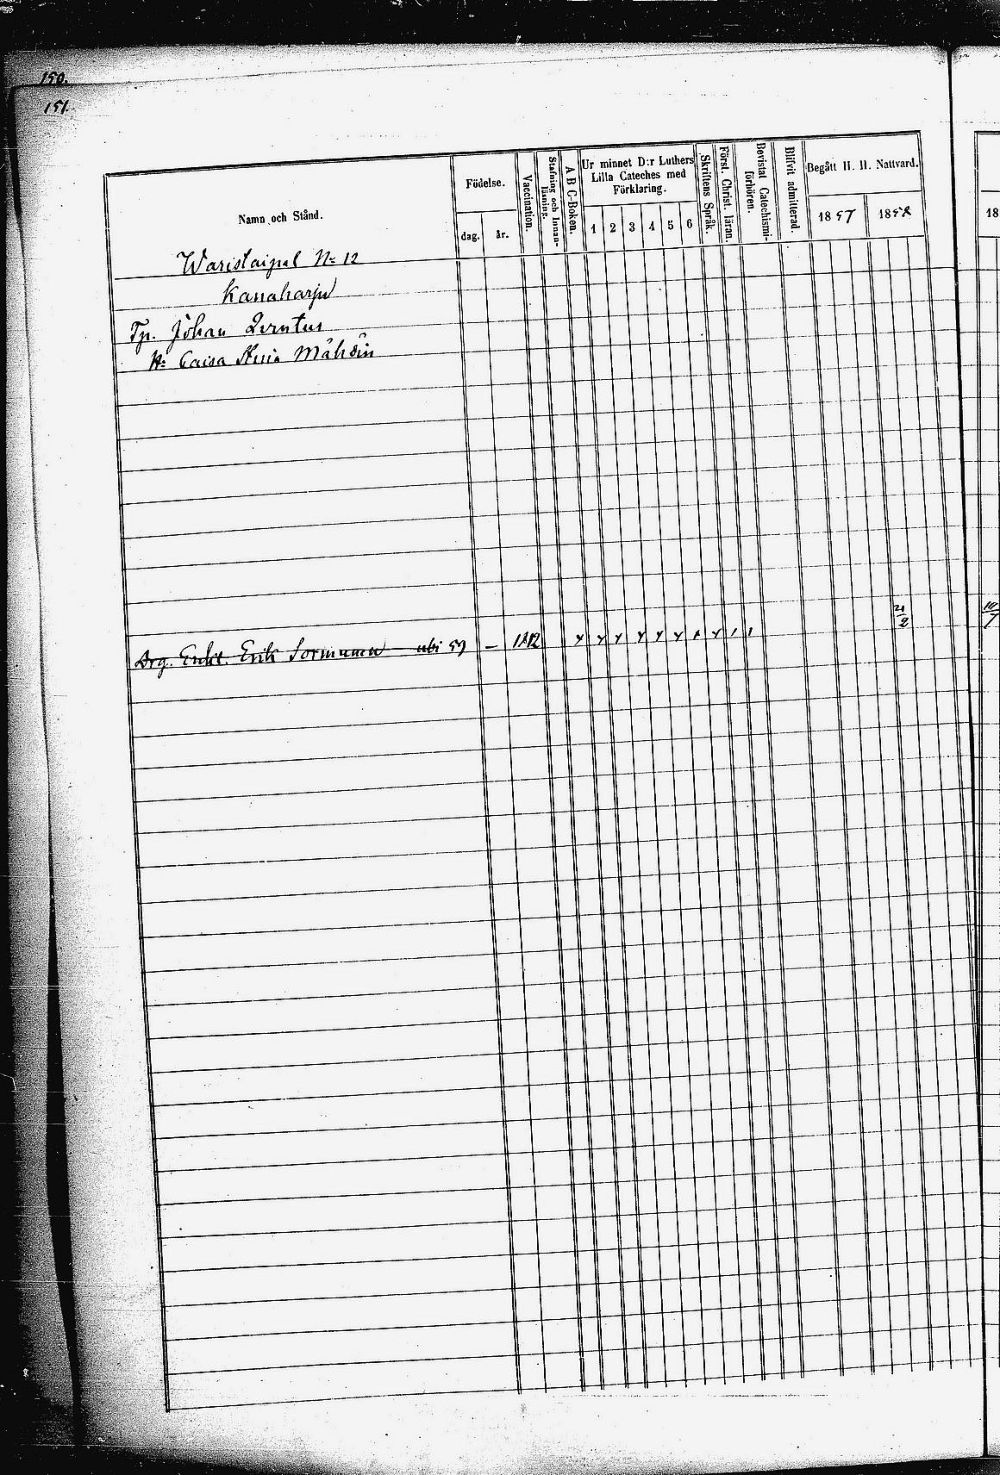 150.
151.
Namn och Stånd.
Födelse.
dag.
år.
Vaccination.
Stafning och Innan-läsning.
A B C-Boken.
Ur minnet D:r Luthers
Lilla Cateches med
Förklaring.
1 2 3 4 5 6
Skriftens Språk.
Först. Christ. läran.
Bevistat Catechismi-förhören.
Blifvit admitterad.
Begått H. H. Nattvard.
1857 1858
18
Waristaipal No 12
Kanaharju
Tp. Johan
H: Caisa Mähöin
Drg. Enkl. Erik Sormunen ubi 59 — 1812
21/2
10/7